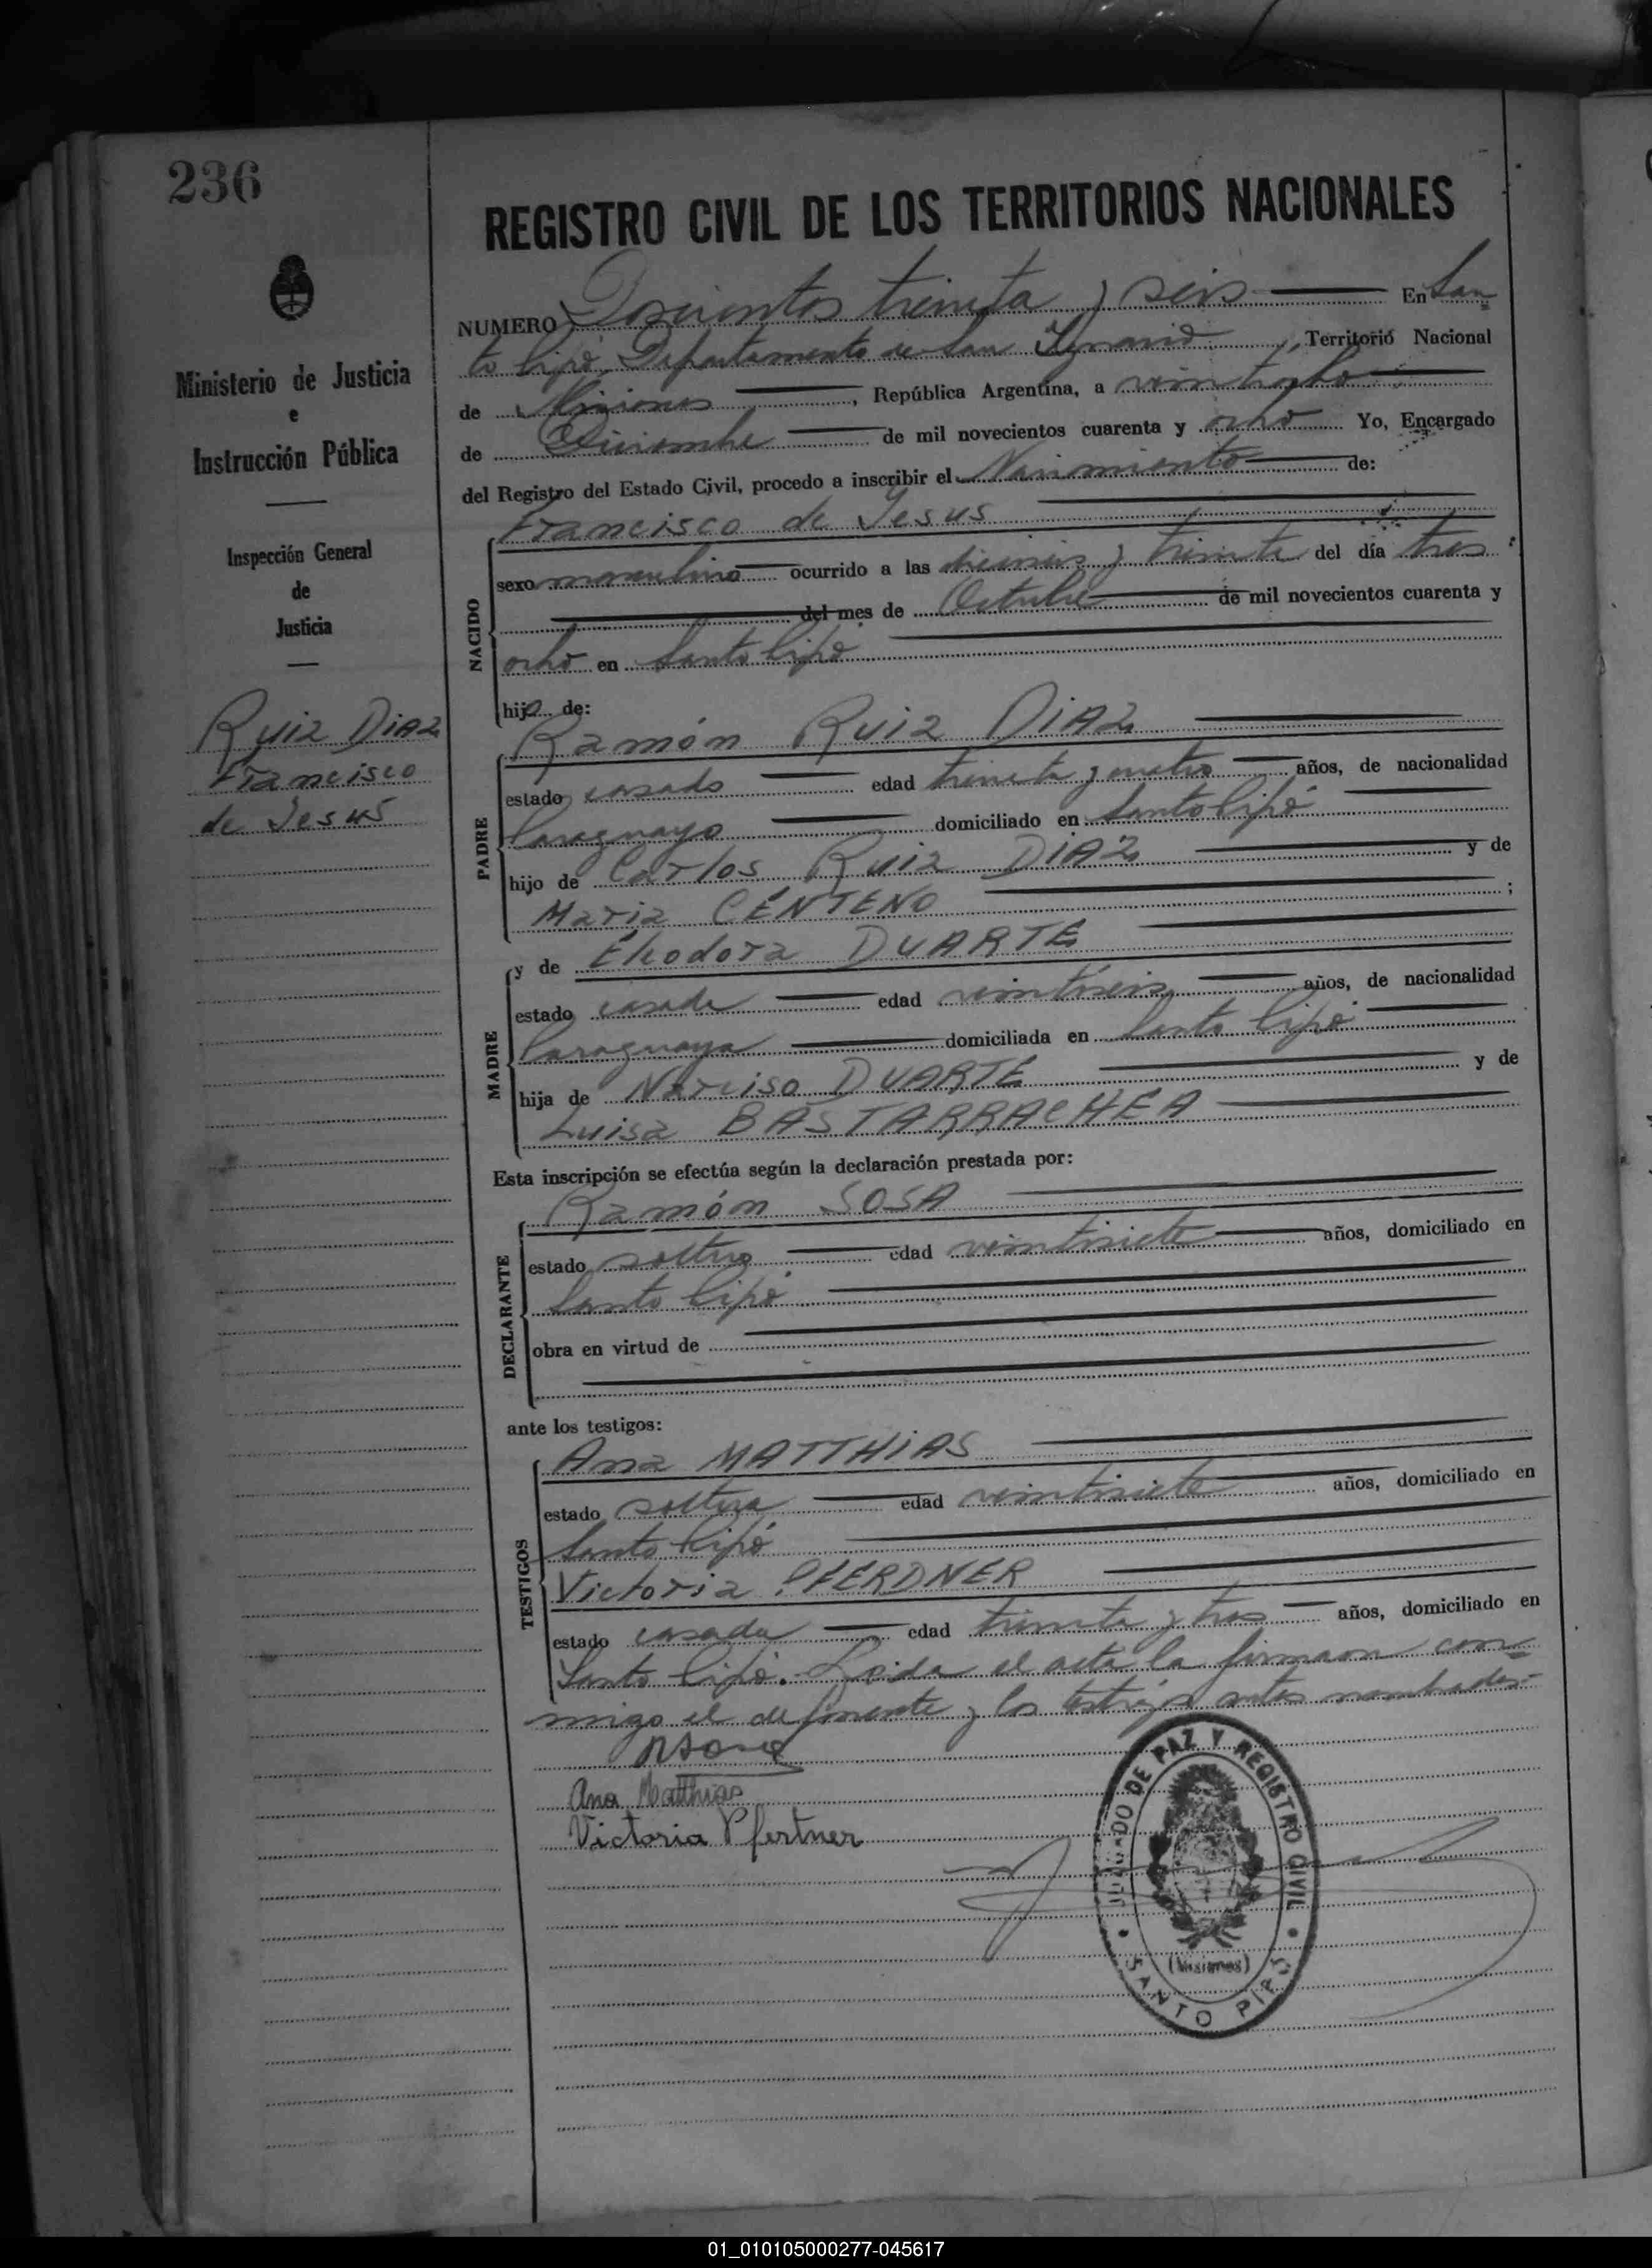 236
Ministerio de Justicia
e
Instrucción Pública
Inspección General
de
Justicia
Ruiz DiAZ
Francisco
de Jesus
REGISTRO CIVIL DE LOS TERRITORIOS NACIONALES
NUMERO Doscientos treinta y seis En San
to Pipó, Departamento de San Ignacio, Territorio Nacional
de Misiones, República Argentina, a veintiocho
de Diciembre de mil novecientos cuarenta y ocho Yo, Encargado
del Registro del Estado Civil, procedo a inscribir el Nacimiento de:
NACIDO
Francisco de Jesus
sexo masculino ocurrido a las y treinta del día tres
del mes de Octubre de mil novecientos cuarenta y
ocho en Santo Pipó
hijo de:
PADRE
Ramón Ruiz DiAZ
estado casado edad treinta y cuatro años, de nacionalidad
Paraguayo domiciliado en Santo Pipó
hijo de Carlos Ruiz DiAZ y de
Maria CENTENO ;
MADRE
y de Eliodora DUARTE
estado casada edad veintiseis años, de nacionalidad
Paraguaya domiciliada en Santo Pipó
hija de Narciso DUARTE y de
Luisa BASTARRACHEA
Esta inscripción se efectúa según la declaración prestada por:
DECLARANTE
Ramón SOSA
estado soltero edad veintisiete años, domiciliado en
Santo Pipó
obra en virtud de
ante los testigos:
TESTIGOS
Ana MATTHiAS
estado soltera edad veintisiete años, domiciliado en
Santo Pipó
Victoria PFERDNER
estado casada edad treinta y tres años, domiciliado en
Santo Pipó. Leida el acta la firmaron con=
migo el y los testigos antes nombrados=
RSosa
Ana Matthias
Victoria Pfertner
JUZGADO DE PAZ Y REGISTRO CIVIL
(Misiones)
SANTO PIPÓ
01_010105000277-045617